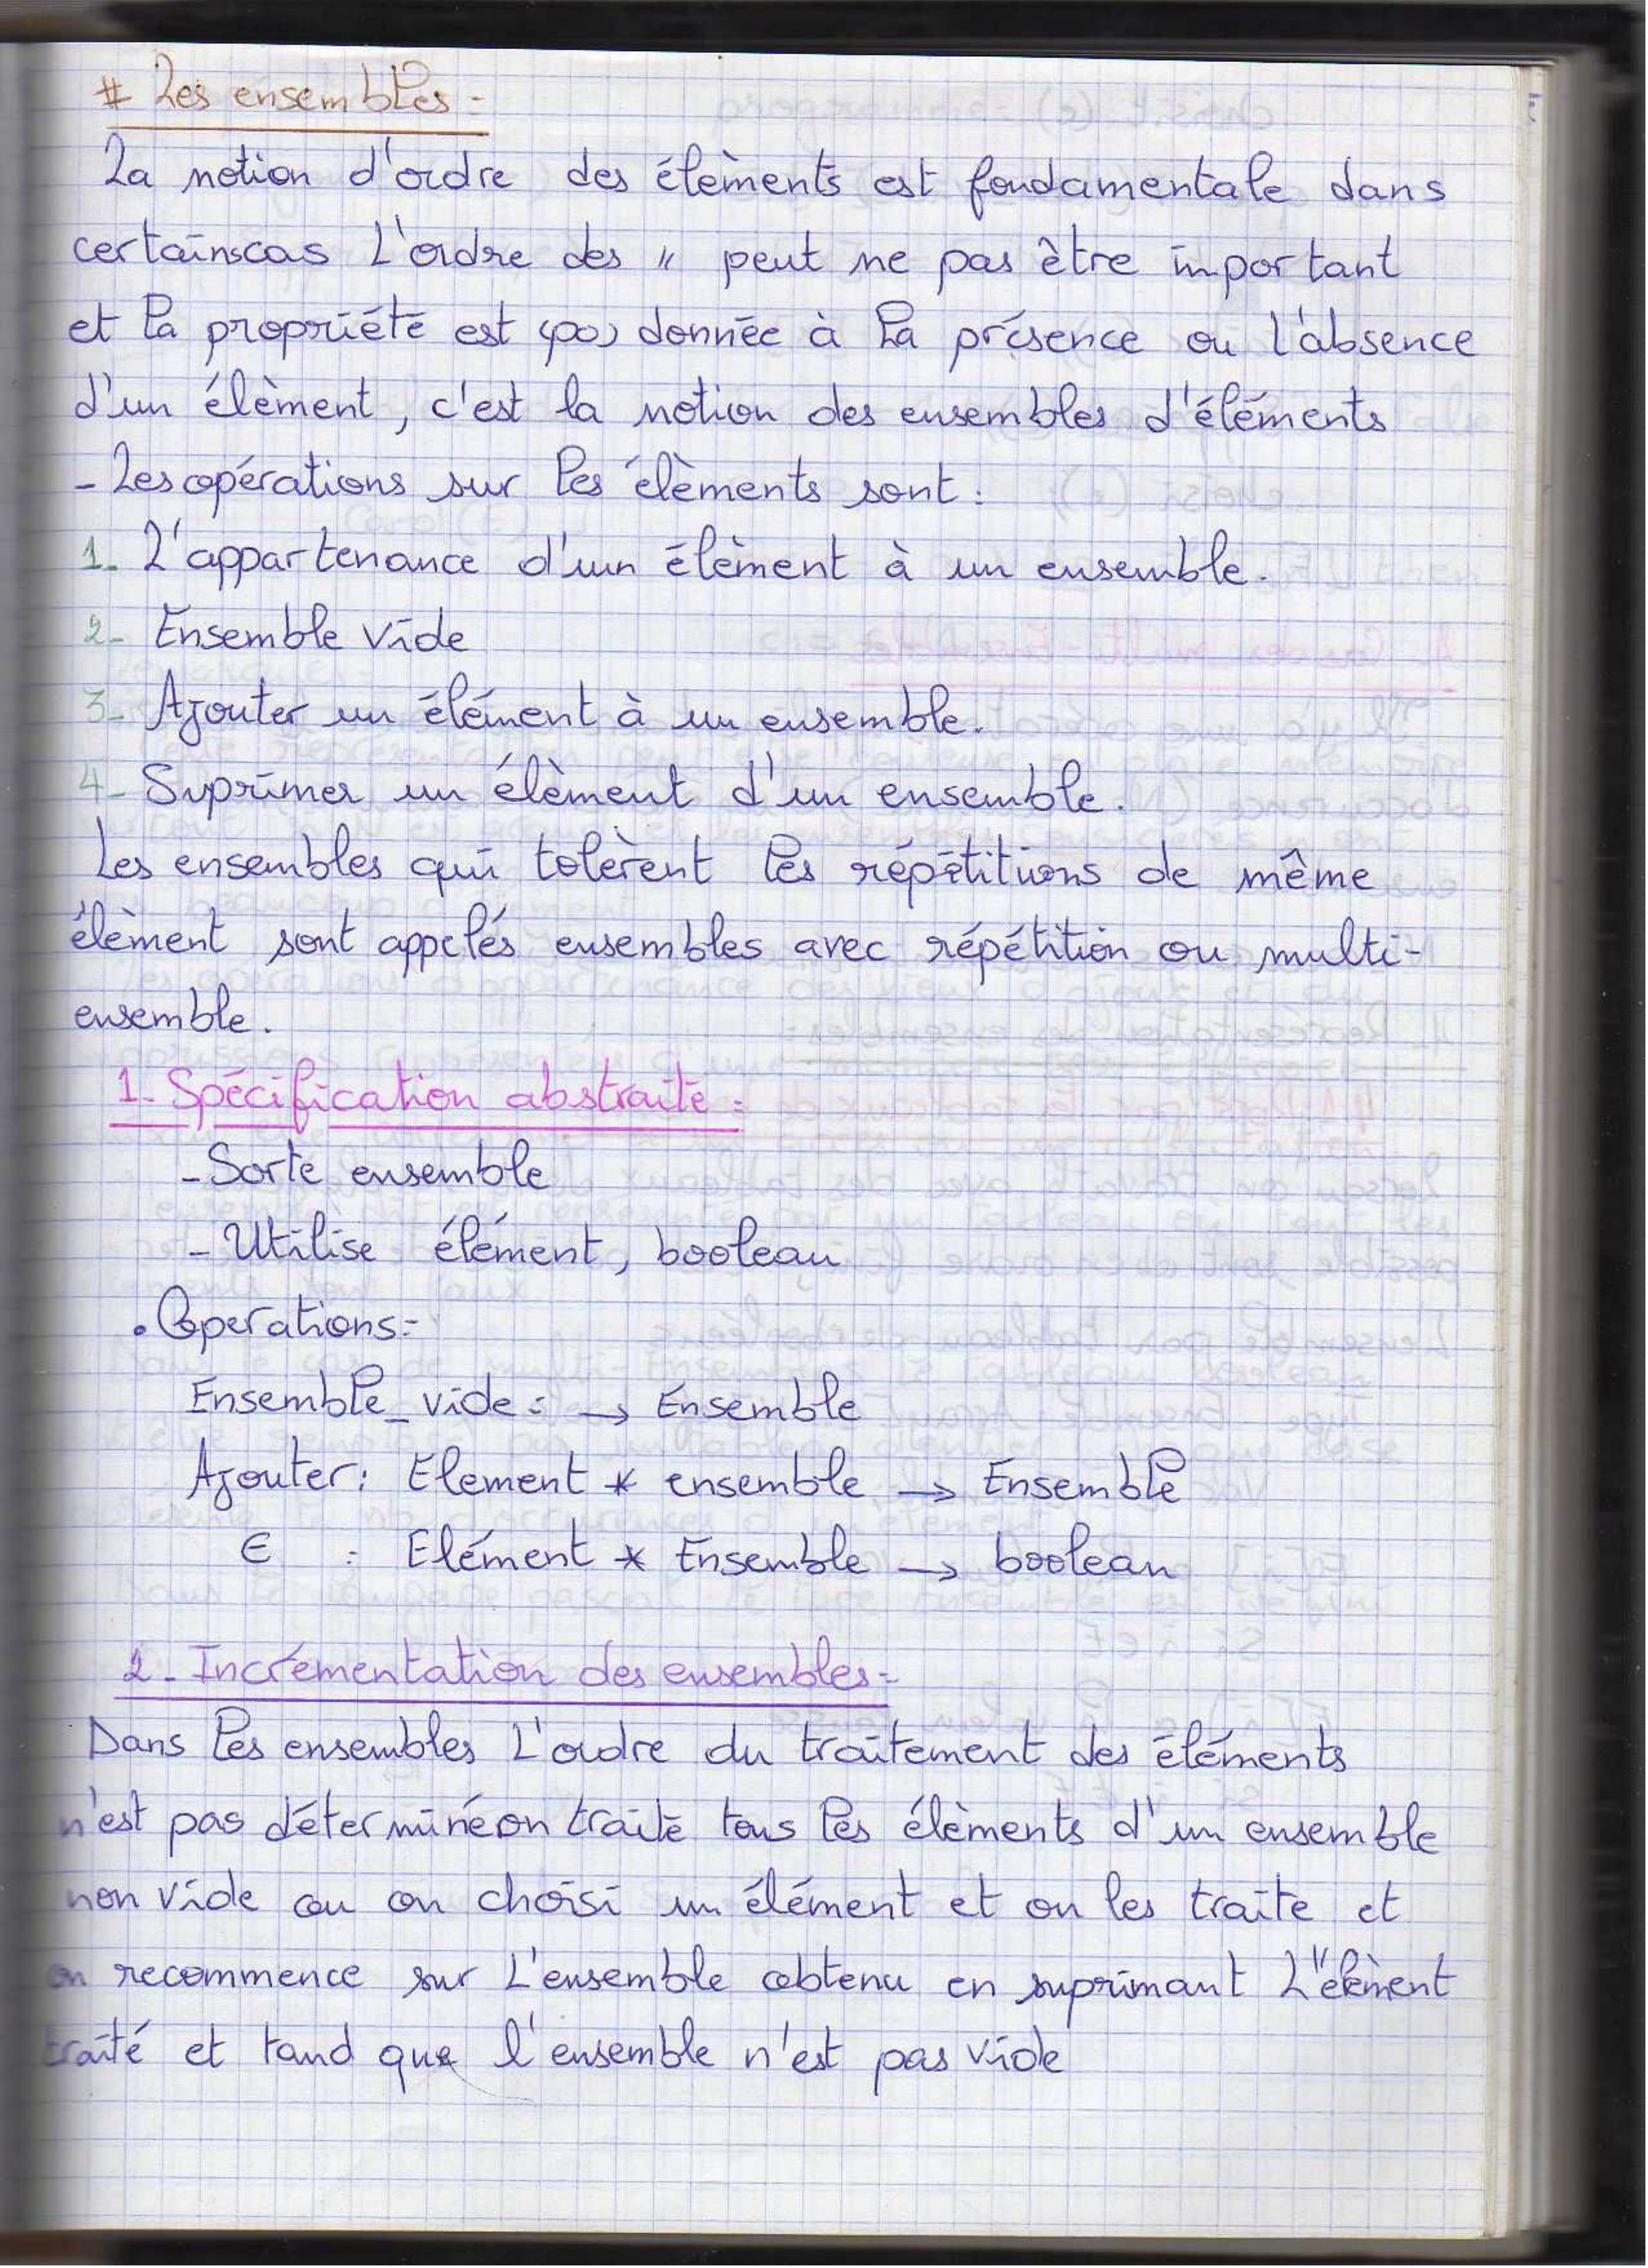 # Les ensembles :
La notion d'ordre des élèments est fondamentale dans
certains cas L'ordre des " peut ne pas être important
et la propriété est donnée à la présence ou l'absence
d'un élèment, c'est la notion des ensembles d'éléments
- Les opérations sur les élèments sont :
1- L'appartenance d'un élèment à un ensemble.
2- Ensemble vide
3- Ajouter un élément à un ensemble.
4- Suprimer un élèment d'un ensemble.
Les ensembles qui tolèrent les répétitions de même
élèment sont appelés ensembles avec répétition ou multi-
ensemble.
1- Spécification abstraite :
- Sorte ensemble
- Utilise élément, boolean
• Operations :
Ensemble_vide : → Ensemble
Ajouter : Element * ensemble → Ensemble
∈ : Elément * Ensemble → boolean
2- Incrémentation des ensembles :
Dans les ensembles L'ordre du traitement des éléments
n'est pas déterminé on traite tous les élèments d'un ensemble
non vide ou on choisi un élément et on les traite et
on recommence sur L'ensemble obtenu en suprimant L'élèment
traité et tand que l'ensemble n'est pas vide